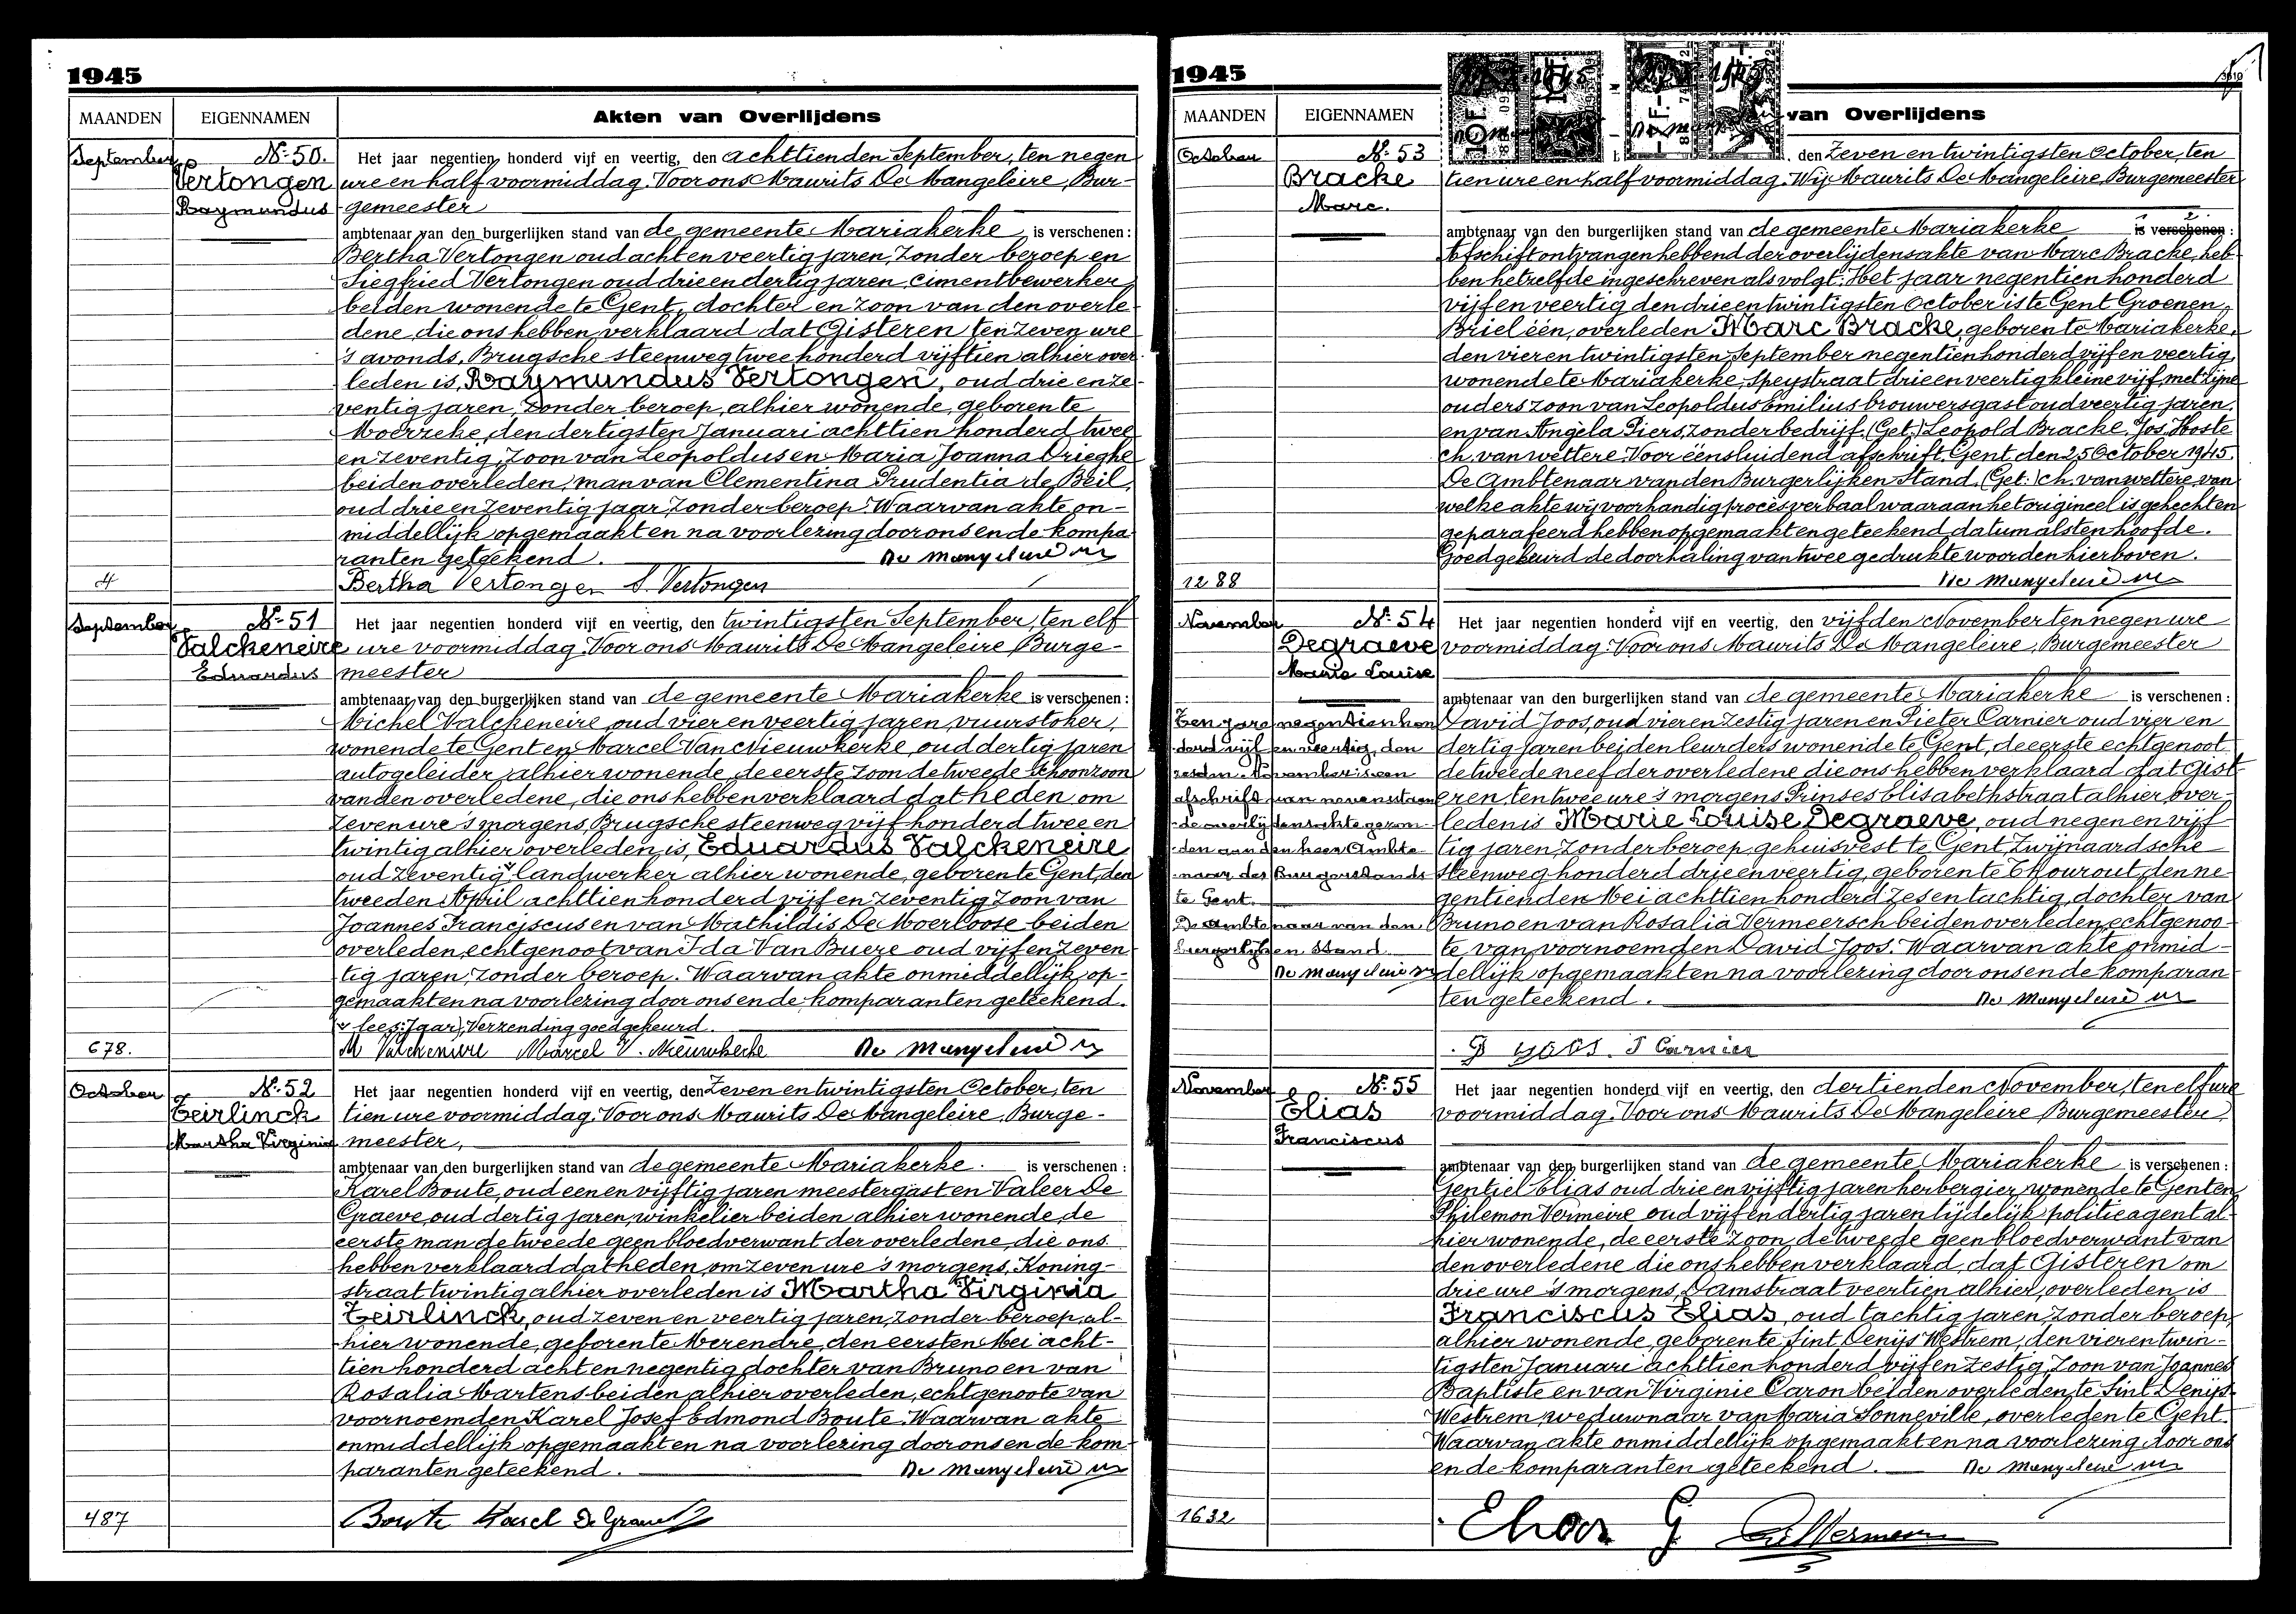 1945
MAANDEN EIGENNAMEN Akten van Overlijdens
September Nº 50. Het jaar negentien honderd vijf en veertig, den achttienden September, ten negen
Vertongen ure en half voormiddag. Voor ons Maurits De Mangeleire, Bur-
Raymundus gemeester
ambtenaar van den burgerlijken stand van de gemeente Mariakerke is verschenen:
Bertha Vertongen oud acht en veertig jaren, zonder beroep en
Siegfried Vertongen oud drie en dertig jaren, cimentbewerker
beiden wonende te Gent, dochter en zoon van den overle-
dene, die ons hebben verklaard dat Gisteren ten zeven ure
's avonds, Brugsche steenweg twee honderd vijftien alhier over-
leden is, Raymundus Vertongen, oud drie en ze-
ventig jaren, zonder beroep, alhier wonende, geboren te
Moerzeke, den dertigsten Januari achttien honderd twee
en zeventig, zoon van Leopoldus en Maria Joanna Drieghe
beiden overleden, man van Clementina Prudentia de Beil,
oud drie en zeventig jaar, zonder beroep. Waarvan akte on-
middellijk opgemaakt en na voorlezing door ons en de kompa
ranten geteekend. De Mangeleire M
4 Bertha Vertongen S. Vertongen
September Nº 51 Het jaar negentien honderd vijf en veertig, den twintigsten September, ten elf
Valckeneire ure voormiddag. Voor ons Maurits De Mangeleire Burge-
Eduardus meester
ambtenaar van den burgerlijken stand van de gemeente Mariakerke is verschenen:
Michel Valckeneire oud vier en veertig jaren, vuurstoker,
wonende te Gent en Marcel Van Nieuwkerke, oud dertig jaren
autogeleider, alhier wonende, de eerste zoon de tweede schoonzoon
van den overledene, die ons hebben verklaard dat heden om
zeven ure 's morgens, Brugsche steenweg vijf honderd twee en
twintig alhier overleden is, Eduardus Valckeneire
oud zeventig landwerker alhier wonende, geboren te Gent, den
tweeden April achttien honderd vijf en zeventig zoon van
Joannes Franciscus en van Mathildis De Moerloose beiden
overleden, echtgenoot van Ida Van Buere oud vijf en zeven-
tig jaren, zonder beroep. Waarvan akte onmiddellijk op-
gemaakt en na voorlezing door ons en de komparanten geteekend.
(lees: jaar), Verzending goedgekeurd.
678. M Valckeneire Marcel V. Nieuwkerke De Mangeleire M
October Nº 52 Het jaar negentien honderd vijf en veertig, den zeven en twintigsten October, ten
Teirlinck tien ure voormiddag. Voor ons Maurits De Mangeleire, Burge-
Martha Virginia meester,
ambtenaar van den burgerlijken stand van de gemeente Mariakerke. is verschenen:
Karel Boute, oud een en vijftig jaren meestergast en Valeer De
Graeve, oud dertig jaren, winkelier beiden alhier wonende, de
eerste man de tweede geen bloedverwant der overledene, die ons
hebben verklaard dat heden, om zeven ure 's morgens, Koning-
straat twintig alhier overleden is Martha Virginia
Teirlinck, oud zeven en veertig jaren, zonder beroep, al-
hier wonende, geboren te Merendre, den eersten Mei acht-
tien honderd acht en negentig dochter van Bruno en van
Rosalia Martens beiden alhier overleden, echtgenoote van
voornoemden Karel Josef Edmond Boute. Waarvan akte
onmiddellijk opgemaakt en na voorlezing door ons en de kom-
paranten geteekend. De Mangeleire M
487 Boute Karel De Graeve
1945
MAANDEN EIGENNAMEN van Overlijdens
October Nº 53 den zeven en twintigsten October, ten
Bracke tien ure en half voormiddag. Wij Maurits De Mangeleire, Burgemeester
Marc.
ambtenaar van den burgerlijken stand van de gemeente Mariakerke is verschenen:
Afschrift ontvangen hebbend der overlijdensakte van Marc Bracke, heb-
ben hetzelfde ingeschreven als volgt: Het jaar negentien honderd
vijf en veertig den drie en twintigsten October is te Gent Groenen
Briel één, overleden Marc Bracke, geboren te Mariakerke,
den vier en twintigsten September negentien honderd vijf en veertig,
wonende te Mariakerke, Speystraat drie en veertig kleine vijf, met zijne
ouders zoon van Leopoldus Emilius brouwersgast oud veertig jaren,
en van Angèla Piers, zonder bedrijf. (Get.) Leopold Bracke, Jos. Hoste
ch. van wettere. Voor éénsluidend afschrift, Gent den 25 October 1945.
De Ambtenaar van den Burgerlijken Stand. (Get:) ch. van wettere, van
welke akte wij voorhandig proces verbaal waaraan het origineel is gehecht en
geparafeerd hebben opgemaakt en geteekend datum als ten hoofde.
Goedgekeurd de doorhaling van twee gedrukte woorden hierboven.
1288 De Mangeleire M
November Nº 54 Het jaar negentien honderd vijf en veertig, den vijfden November ten negen ure
Degraeve voormiddag. Voor ons Maurits De Mangeleire, Burgemeester
Marie Louise
ambtenaar van den burgerlijken stand van de gemeente Mariakerke is verschenen:
Ten jare negentien hon David Joos, oud vier en zestig jaren en Pieter Carnier oud vier en
derd vijf en veertig, den dertig jaren beiden leurders wonende te Gent, de eerste echtgenoot
zesden November is een de tweede neef der overledene die ons hebben verklaard dat Gist-
afschrift van nevenstaan eren, ten twee ure 's morgens Prinses Elisabethstraat alhier over-
de overlijdensakte gezon- leden is Marie Louise Degraeve, oud negen en vijf-
den aan den heer Ambte- tig jaren, zonder beroep, gehuisvest te Gent Zwijnaardsche
naar des Burgerstands steenweg honderd drie en veertig, geboren te Thourout, den ne-
te Gent. gentienden Mei achttien honderd zes en tachtig, dochter van
De Ambtenaar van den Bruno en van Rosalia Vermeersch beiden overleden, echtgenoo-
burgerlijken Stand. te van voornoemden David Joos. Waarvan akte onmid-
De Mangeleire M dellijk opgemaakt en na voorlezing door ons en de komparan-
ten geteekend. De Mangeleire M
D Joos. P Carnier
November Nº 55 Het jaar negentien honderd vijf en veertig, den dertienden November, ten elf ure
Elias voormiddag. Voor ons Maurits De Mangeleire Burgemeester
Franciscus
ambtenaar van den burgerlijken stand van de gemeente Mariakerke is verschenen:
Gentiel Elias oud drie en vijftig jaren herbergier, wonende te Gent en
Philemon Vermeire oud vijf en dertig jaren tijdelijk politieagent al-
hier wonende, de eerste zoon, de tweede geen bloedverwant van
den overledene die ons hebben verklaard, dat Gisteren om
drie ure 's morgens, Damstraat veertien alhier, overleden is
Franciscus Elias, oud tachtig jaren, zonder beroep,
alhier wonende, geboren te Sint Denijs Westrem, den vier en twin-
tigsten Januari achttien honderd vijf en zestig, zoon van Joannes
Baptiste en van Virginie Caron beiden overleden te Sint Denijs
Westrem, weduwnaar van Maria Sonneville, overleden te Gent.
Waarvan akte onmiddellijk opgemaakt en na voorlezing door ons
en de komparanten geteekend. De Mangeleire M
1632 Elias G